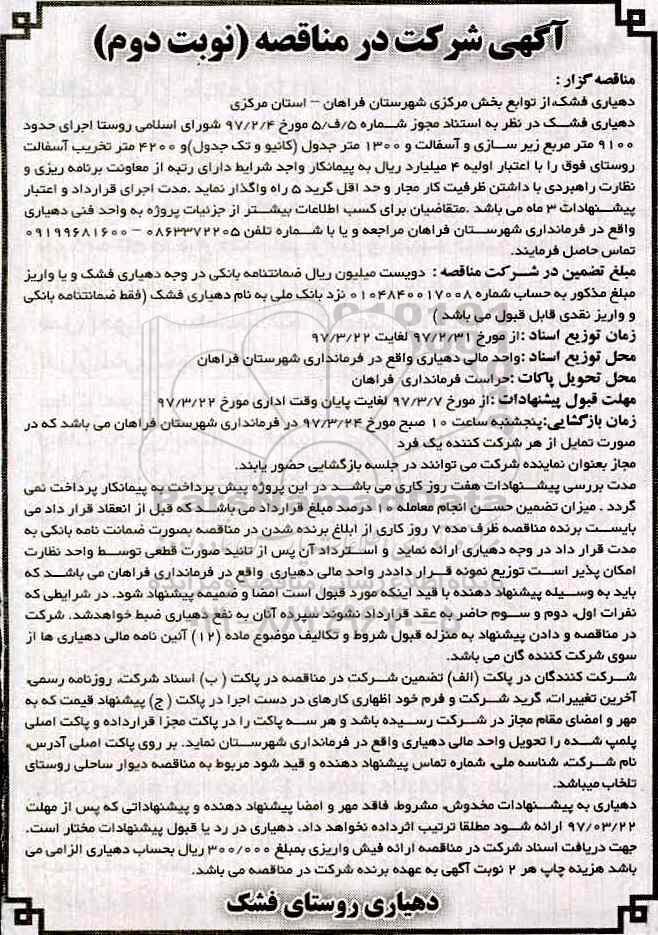 آگهی شرکت در مناقصه (نوبت دوم)
مناقصه گزار :
دهیاری فشک،از توابع بخش مرکزی شهرستان فراهان – استان مرکزی
دهیاری فشک در نظر به استناد مجوز شماره ۵/ف/۵ مورخ ۹۷/۲/۴ شورای اسلامی روستا اجرای حدود
۹۱۰۰ متر مربع زیر سازی و آسفالت و ۱۳۰۰ متر جدول (کانیو و تک جدول)و ۴۲۰۰ متر تخریب آسفالت
روستای فوق را با اعتبار اولیه ۴ میلیارد ریال به پیمانکار واجد شرایط دارای رتبه از معاونت برنامه ریزی و
نظارت راهبردی با داشتن ظرفیت کار مجاز و حد اقل گرید ۵ راه واگذار نماید .مدت اجرای قرارداد و اعتبار
پیشنهادات ۳ ماه می باشد .متقاضیان برای کسب اطلاعات بیشتر از جزئیات پروژه به واحد فنی دهیاری
واقع در فرمانداری شهرستان فراهان مراجعه و یا با شماره تلفن ۰۸۶۳۳۷۲۲۰۵ – ۰۹۱۹۹۶۸۱۶۰۰
تماس حاصل فرمایند.
مبلغ تضمین در شرکت مناقصه : دویست میلیون ریال ضمانتنامه بانکی در وجه دهیاری فشک و یا واریز
مبلغ مذکور به حساب شماره ۰۱۰۴۸۴۰۰۱۷۰۰۸ نزد بانک ملی به نام دهیاری فشک (فقط ضمانتنامه بانکی
و واریز نقدی قابل قبول می باشد )
زمان توزیع اسناد :از مورخ ۹۷/۲/۳۱ لغایت ۹۷/۳/۲۲
محل توزیع اسناد :واحد مالی دهیاری واقع در فرمانداری شهرستان فراهان
محل تحویل پاکات :حراست فرمانداری فراهان
مهلت قبول پیشنهادات :از مورخ ۹۷/۳/۷ لغایت پایان وقت اداری مورخ ۹۷/۳/۲۲
زمان بازگشایی:پنجشنبه ساعت ۱۰ صبح مورخ ۹۷/۳/۲۴ در فرمانداری شهرستان فراهان می باشد که در
صورت تمایل از هر شرکت کننده یک فرد
مجاز بعنوان نماینده شرکت می توانند در جلسه بازگشایی حضور یابند.
مدت بررسی پیشنهادات هفت روز کاری می باشد در این پروژه پیش پرداخت به پیمانکار پرداخت نمی
گردد . میزان تضمین حسن انجام معامله ۱۰ درصد مبلغ قرارداد می باشد که قبل از انعقاد قرار داد می
بایست برنده مناقصه ظرف مده ۷ روز کاری از ابلاغ برنده شدن در مناقصه بصورت ضمانت نامه بانکی به
مدت قرار داد در وجه دهیاری ارائه نماید و استرداد آن پس از تائید صورت قطعی توسط واحد نظارت
امکان پذیر است توزیع نمونه قرار داددر واحد مالی دهیاری واقع در فرمانداری فراهان می باشد که
باید به وسیله پیشنهاد دهنده با قید اینکه مورد قبول است امضا و ضمیمه پیشنهاد شود. در شرایطی که
نفرات اول، دوم و سوم حاضر به عقد قرارداد نشوند سپرده آنان به نفع دهیاری ضبط خواهدشد. شرکت
در مناقصه و دادن پیشنهاد به منزله قبول شروط و تکالیف موضوع ماده (۱۲) آئین نامه مالی دهیاری ها از
سوی شرکت کننده گان می باشد.
شرکت کنندگان در پاکت (الف) تضمین شرکت در مناقصه در پاکت ( ب) اسناد شرکت، روزنامه رسمی،
آخرین تغییرات، گرید شرکت و فرم خود اظهاری کارهای در دست اجرا در پاکت ( ج) پیشنهاد قیمت که به
مهر و امضای مقام مجاز در شرکت رسیده باشد و هر سه پاکت را در پاکت مجزا قرارداده و پاکت اصلی
پلمپ شده را تحویل واحد مالی دهیاری واقع در فرمانداری شهرستان نماید. بر روی پاکت اصلی آدرس،
نام شرکت، شناسه ملی، شماره تماس پیشنهاد دهنده و قید شود مربوط به مناقصه دیوار ساحلی روستای
تلخاب میباشد.
دهیاری به پیشنهادات مخدوش، مشروط، فاقد مهر و امضا پیشنهاد دهنده و پیشنهاداتی که پس از مهلت
۹۷/۰۳/۲۲ ارائه شود مطلقا ترتیب اثرداده نخواهد داد. دهیاری در رد یا قبول پیشنهادات مختار است.
جهت دریافت اسناد شرکت در مناقصه ارائه فیش واریزی بمبلغ ۳۰۰/۰۰۰ ریال بحساب دهیاری الزامی می
باشد هزینه چاپ هر ۲ نوبت آگهی به عهده برنده شرکت در مناقصه می باشد.
دهیاری روستای فشک